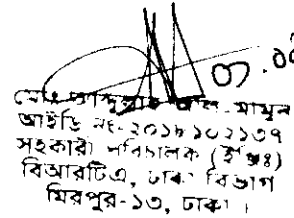 ০৩.০
মোঃ আব্দুল্লাহ আল-মামুন
আইডি নং-২০১৮১০২১৩৭
সহকারী পরিচালক (ইঞ্জিঃ)
বিআরটিএ, ঢাকা বিভাগ
মিরপুর-১৩, ঢাকা।